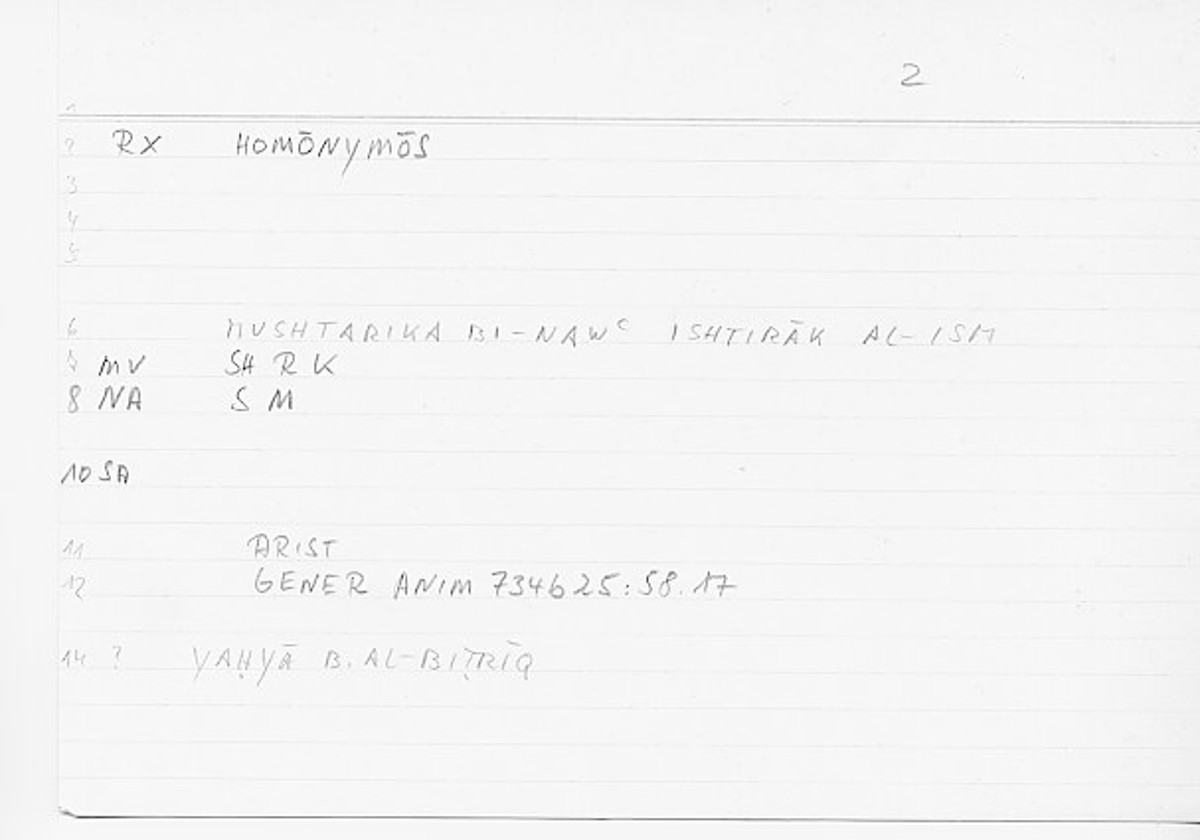 2
1
2 RX HOMŌNYMŌS
3
4
5
6 MUSHTARIKA BI-NAWʿ ISHTIRĀK AL-ISM
7 MV SH R K
8 NA S M
10 SA
11 ARIST
12 GENER ANIM 734b25:58.17
14 ? YAḤYĀ B. AL-BIṬRĪQ